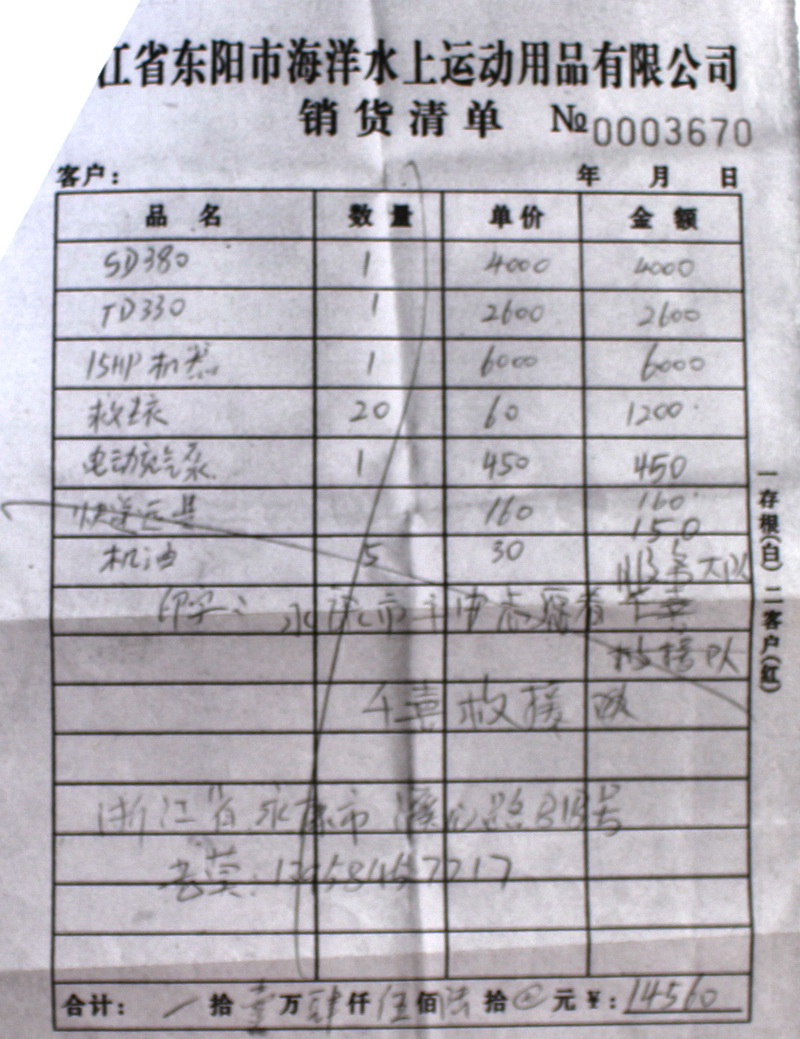 江省东阳市海洋水上运动用品有限公司
销货清单 № 0003670
客户： 年 月 日
品名 数量 单价 金额
SD380 1 4000 4000
TD330 1 2600 2600
15HP 机器 1 6000 6000
救生衣 20 60 1200
电动充气泵 1 450 450
快递运费 160 160
机油 5 30 150
印字： 永康市 志愿者
救援队
千喜救援队
浙江省永康市 号
合计： 拾壹万肆仟伍佰陆拾 元 ¥：14560
一存根(白) 二客户(红)